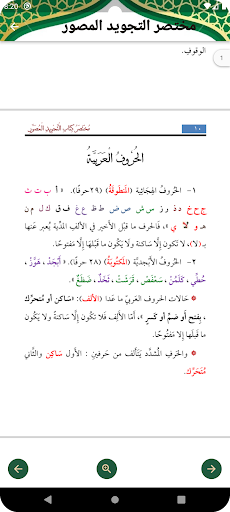 8:20
مختصر التجويد المصور
الوقوفِ.
١
١٠ مُخْتَصَرُ كِتَابِ التَّجْوِيدِ المُصَوَّرِ
الحُرُوفُ الْعَرَبِيَّةُ
١- الحُروفُ الهِجَائِية (المَنطُوقَةُ) (٢٩ حرفًا). « أ ب ت ث
ج ح خ د ذ ر ز س ش ص ض ط ظ ع غ ف ق ك ل م ن
هـ و لا ي »، فَالحرف ما قَبْلَ الأخيرِ هي الألِف المَدِّية يُعبر عنها
بـ (لَا)، لا تَكون إلَّا سَاكنة ولا يَكون ما قَبلَها إلَّا مَفتوحًا.
٢- الحُروف الأَبْجَدِيَّة (المَكتُوبَةُ) (٢٨ حرفًا). « أَبْجَدْ ، هَوَّزْ ،
حُطِّي ، كَلَمُنْ ، سَعْفَصْ ، قَرَشَتْ ، ثَخَذْ ، ضَظَغٌ ».
حَالات الحُروف العَربي ما عَدا (الألِف): «سَاكِن أو مُتحرِّك
، بِفتحٍ أو ضَمٍّ أو كَسرٍ »، أمَّا الألِف فَلا تكون إلَّا سَاكنة ولا يَكون
ما قَبلَها إلا مَفتوحًا.
والحَرفِ المُشدَّد يَتألَّف مِن حَرفينِ : الأول سَاكِن والثَّاني
مُتَحَرِّك.